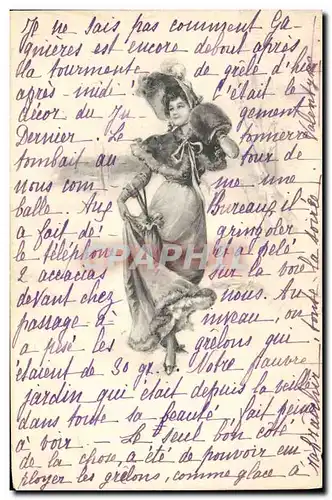 Je ne sais pas comment Ga-
gnières est encore debout après
la tourmente de grêle d'hier
après-midi. C'était le
décor du Ju- gement
Dernier. Le tonnerre
tombait au tour de
nous com me une
balle. Au Bureau il
a fait dé gringoler
le téléphon e a pelé
2 accacias sur la voie
devant chez nous. Au
passage à niveau, on
a pesé les grêlons qui
étaient de 30 gr. Notre pauvre
jardin qui était depuis la veille
dans toute sa beauté, fait peine
à voir - Le seul bon côté
de la chose, a été de pouvoir em
ployer les grêlons, comme glace à
rafraîchir, toute la soirée